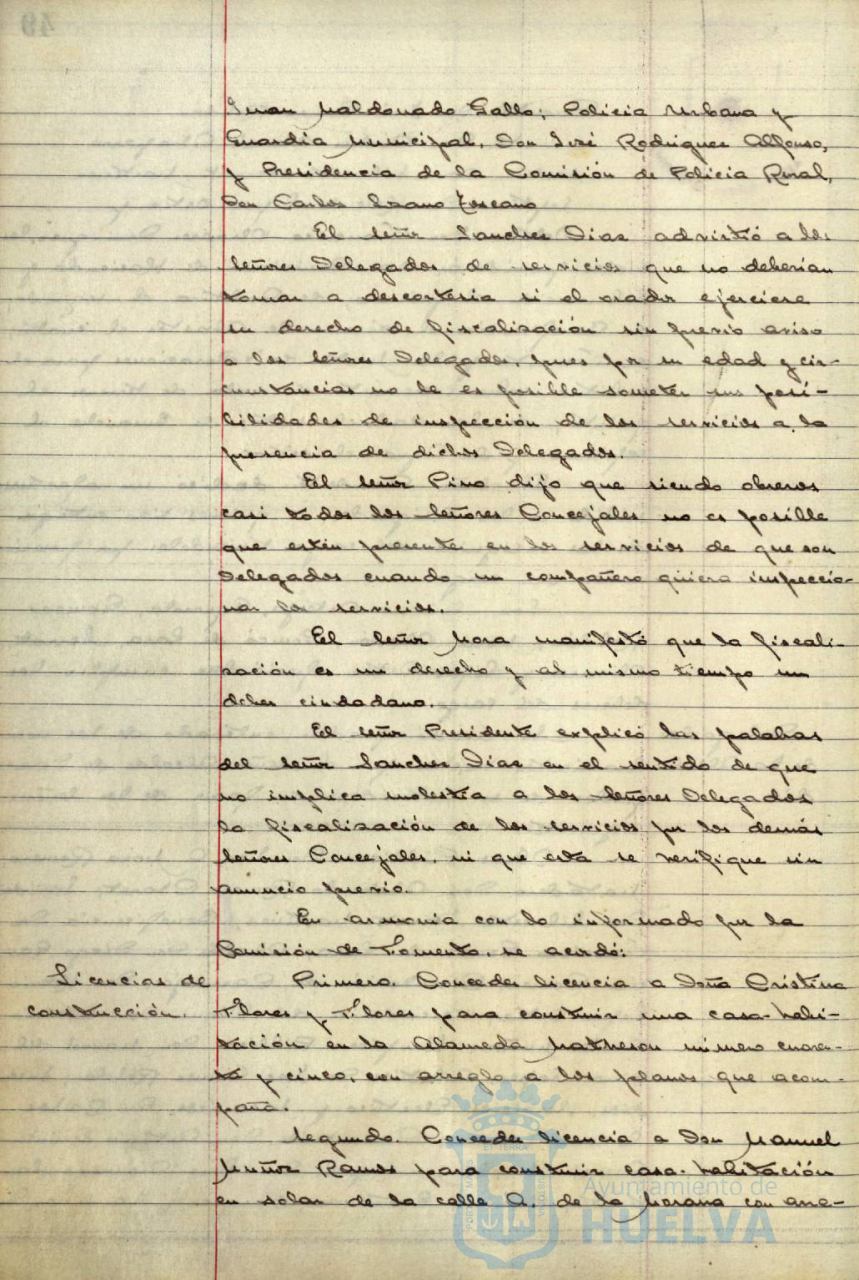 49
Juan Maldonado Gallo; Policia Urbana y
Guardia Municipal, Don José Rodriguez Alfonso,
y Presidencia de la Comisión de Policia Rural,
Don Carlos Lozano Toscano
El señor Sanchez Diaz advirtió a los
señores Delegados de servicios que no deberian
tomar a descortesia si el orador ejerciese
su derecho de fiscalización sin previo aviso
a los señores Delegados, pues por su edad y cir-
cunstancias no le es posible someter sus posi-
bilidades de inspección de los servicios a la
presencia de dichos Delegados.
El señor Pino dijo que siendo obreros
casi todos los señores Concejales no es posible
que estén presente en los servicios de que son
Delegados cuando un compañero quiera inspeccio-
nar los servicios.
El señor Mora manifestó que la fiscali-
zación es un derecho y al mismo tiempo un
deber ciudadano.
El señor Presidente explicó las palabras
del señor Sanchez Diaz en el sentido de que
no implica molestia a los señores Delegados
la fiscalización de los servicios por los demás
señores Concejales, ni que esta se verifique sin
anuncio previo.
En armonia con lo informado por la
Comisión de Fomento, se acordó:
Licencias de
construcción.
Primero. Conceder licencia a Doña Cristina
Flores y Flores para construir una casa-habi-
tación en la Alameda Matheson número cuaren-
ta y cinco, con arreglo a los planos que acom-
paña.
Segundo. Conceder licencia a Don Manuel
Muñoz Ramos para construir casa-habitación
en solar de la calle A. de la Morana con arre-
Ayuntamiento de
HUELVA